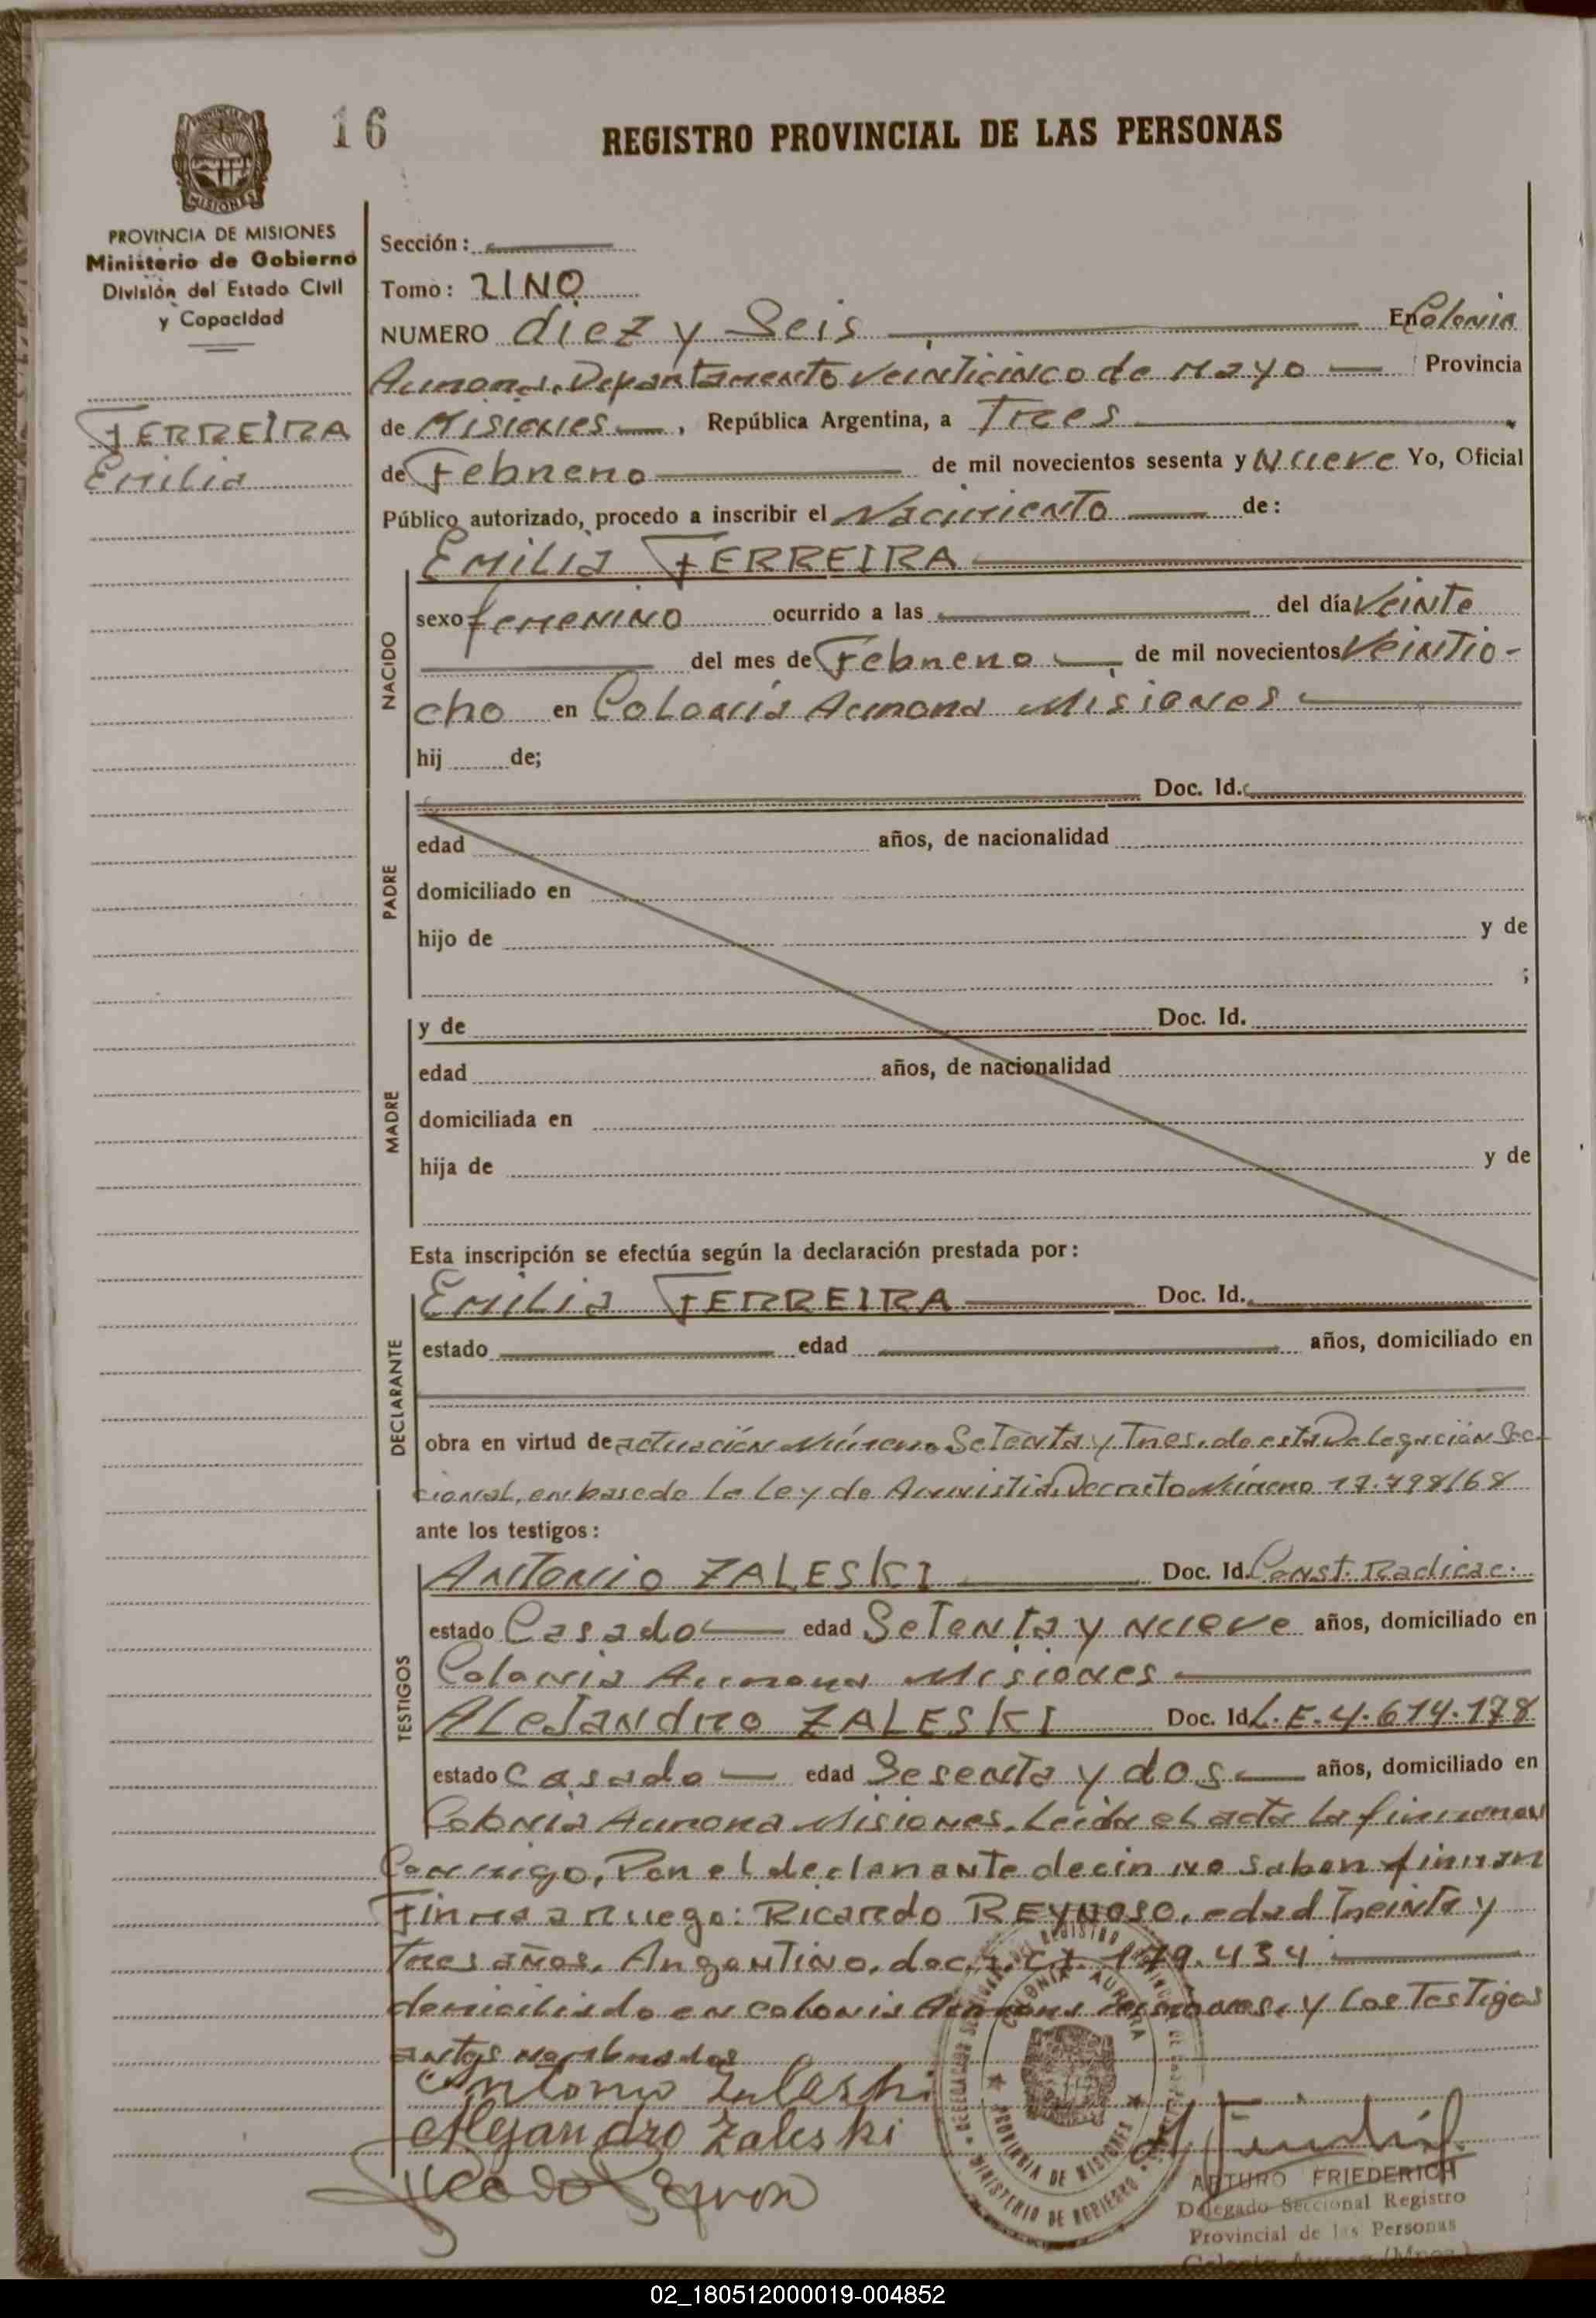 16
REGISTRO PROVINCIAL DE LAS PERSONAS
PROVINCIA DE MISIONES
Ministerio de Gobierno
División del Estado Civil
y Capacidad
FERREIRA
Emilia
Sección:
Tomo: UNO
NUMERO diez y Seis En Colonia
Aurora, Departamento Veinticinco de Mayo Provincia
de Misiones, República Argentina, a Tres
de Febrero de mil novecientos sesenta y Nueve Yo, Oficial
Público autorizado, procedo a inscribir el Nacimiento de:
NACIDO
Emilia FERREIRA
sexo femenino ocurrido a las del día Veinte
del mes de Febrero de mil novecientos Veintio-
cho en Colonia Aurora Misiones
hij de;
PADRE
Doc. Id.
edad años, de nacionalidad
domiciliado en
hijo de y de
;
MADRE
y de Doc. Id.
edad años, de nacionalidad
domiciliada en
hija de y de
Esta inscripción se efectúa según la declaración prestada por:
DECLARANTE
Emilia FERREIRA Doc. Id.
estado edad años, domiciliado en
obra en virtud de actuación Número Setenta y Tres, de esta Delegación Sec-
cional, en base de la Ley de Amnistia, Decreto Número 17.798/68
ante los testigos:
TESTIGOS
Antonio ZALESKI Doc. Id. Const. Radicac.
estado Casado edad Setenta y nueve años, domiciliado en
Colonia Aurora Misiones
Alejandro ZALESKI Doc. Id. L.E. 4.614.178
estado Casado edad Sesenta y dos años, domiciliado en
Colonia Aurora Misiones. Leída el acta la firmaron
Conmigo, Por el declarante decir no saber firmar
Firma a ruego: Ricardo REYNOSO, edad Treinta y
tres años, Argentino, doc. C.I. 179.434
domiciliado en colonia Aurora Misiones, y los Testigos
antes nombrados
Antonio Zaleski
Alejandro Zaleski
COLONIA AURORA
PROVINCIA DE MISIONES
MINISTERIO DE GOBIERNO
ARTURO FRIEDERICH
Delegado Seccional Registro
Provincial de las Personas
Colonia Aurora (Mnes.)
02_180512000019-004852